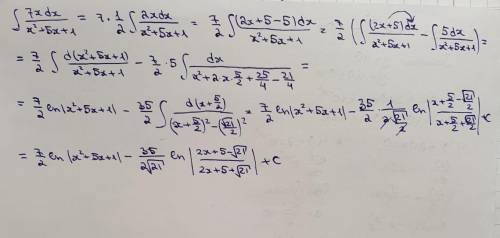 ∫ 7xdx/(x²+5x+1) = 7·1/2 ∫ 2xdx/(x²+5x+1) = 7/2 ∫ (2x+5-5)dx/(x²+5x+1) = 7/2 (∫ (2x+5)dx/(x²+5x+1) - ∫ 5dx/(x²+5x+1)) =
= 7/2 ∫ d(x²+5x+1)/(x²+5x+1) - 7/2·5 ∫ dx/(x²+2·x·5/2+25/4-21/4) =
= 7/2 ln|x²+5x+1| - 35/2 ∫ d(x+5/2)/((x+5/2)²-(√21/2)²) = 7/2 ln|x²+5x+1| - 35/2 · 1/(2·√21/2) ln|(x+5/2-√21/2)/(x+5/2+√21/2)| + C
= 7/2 ln|x²+5x+1| - 35/(2√21) ln|(2x+5-√21)/(2x+5+√21)| + C